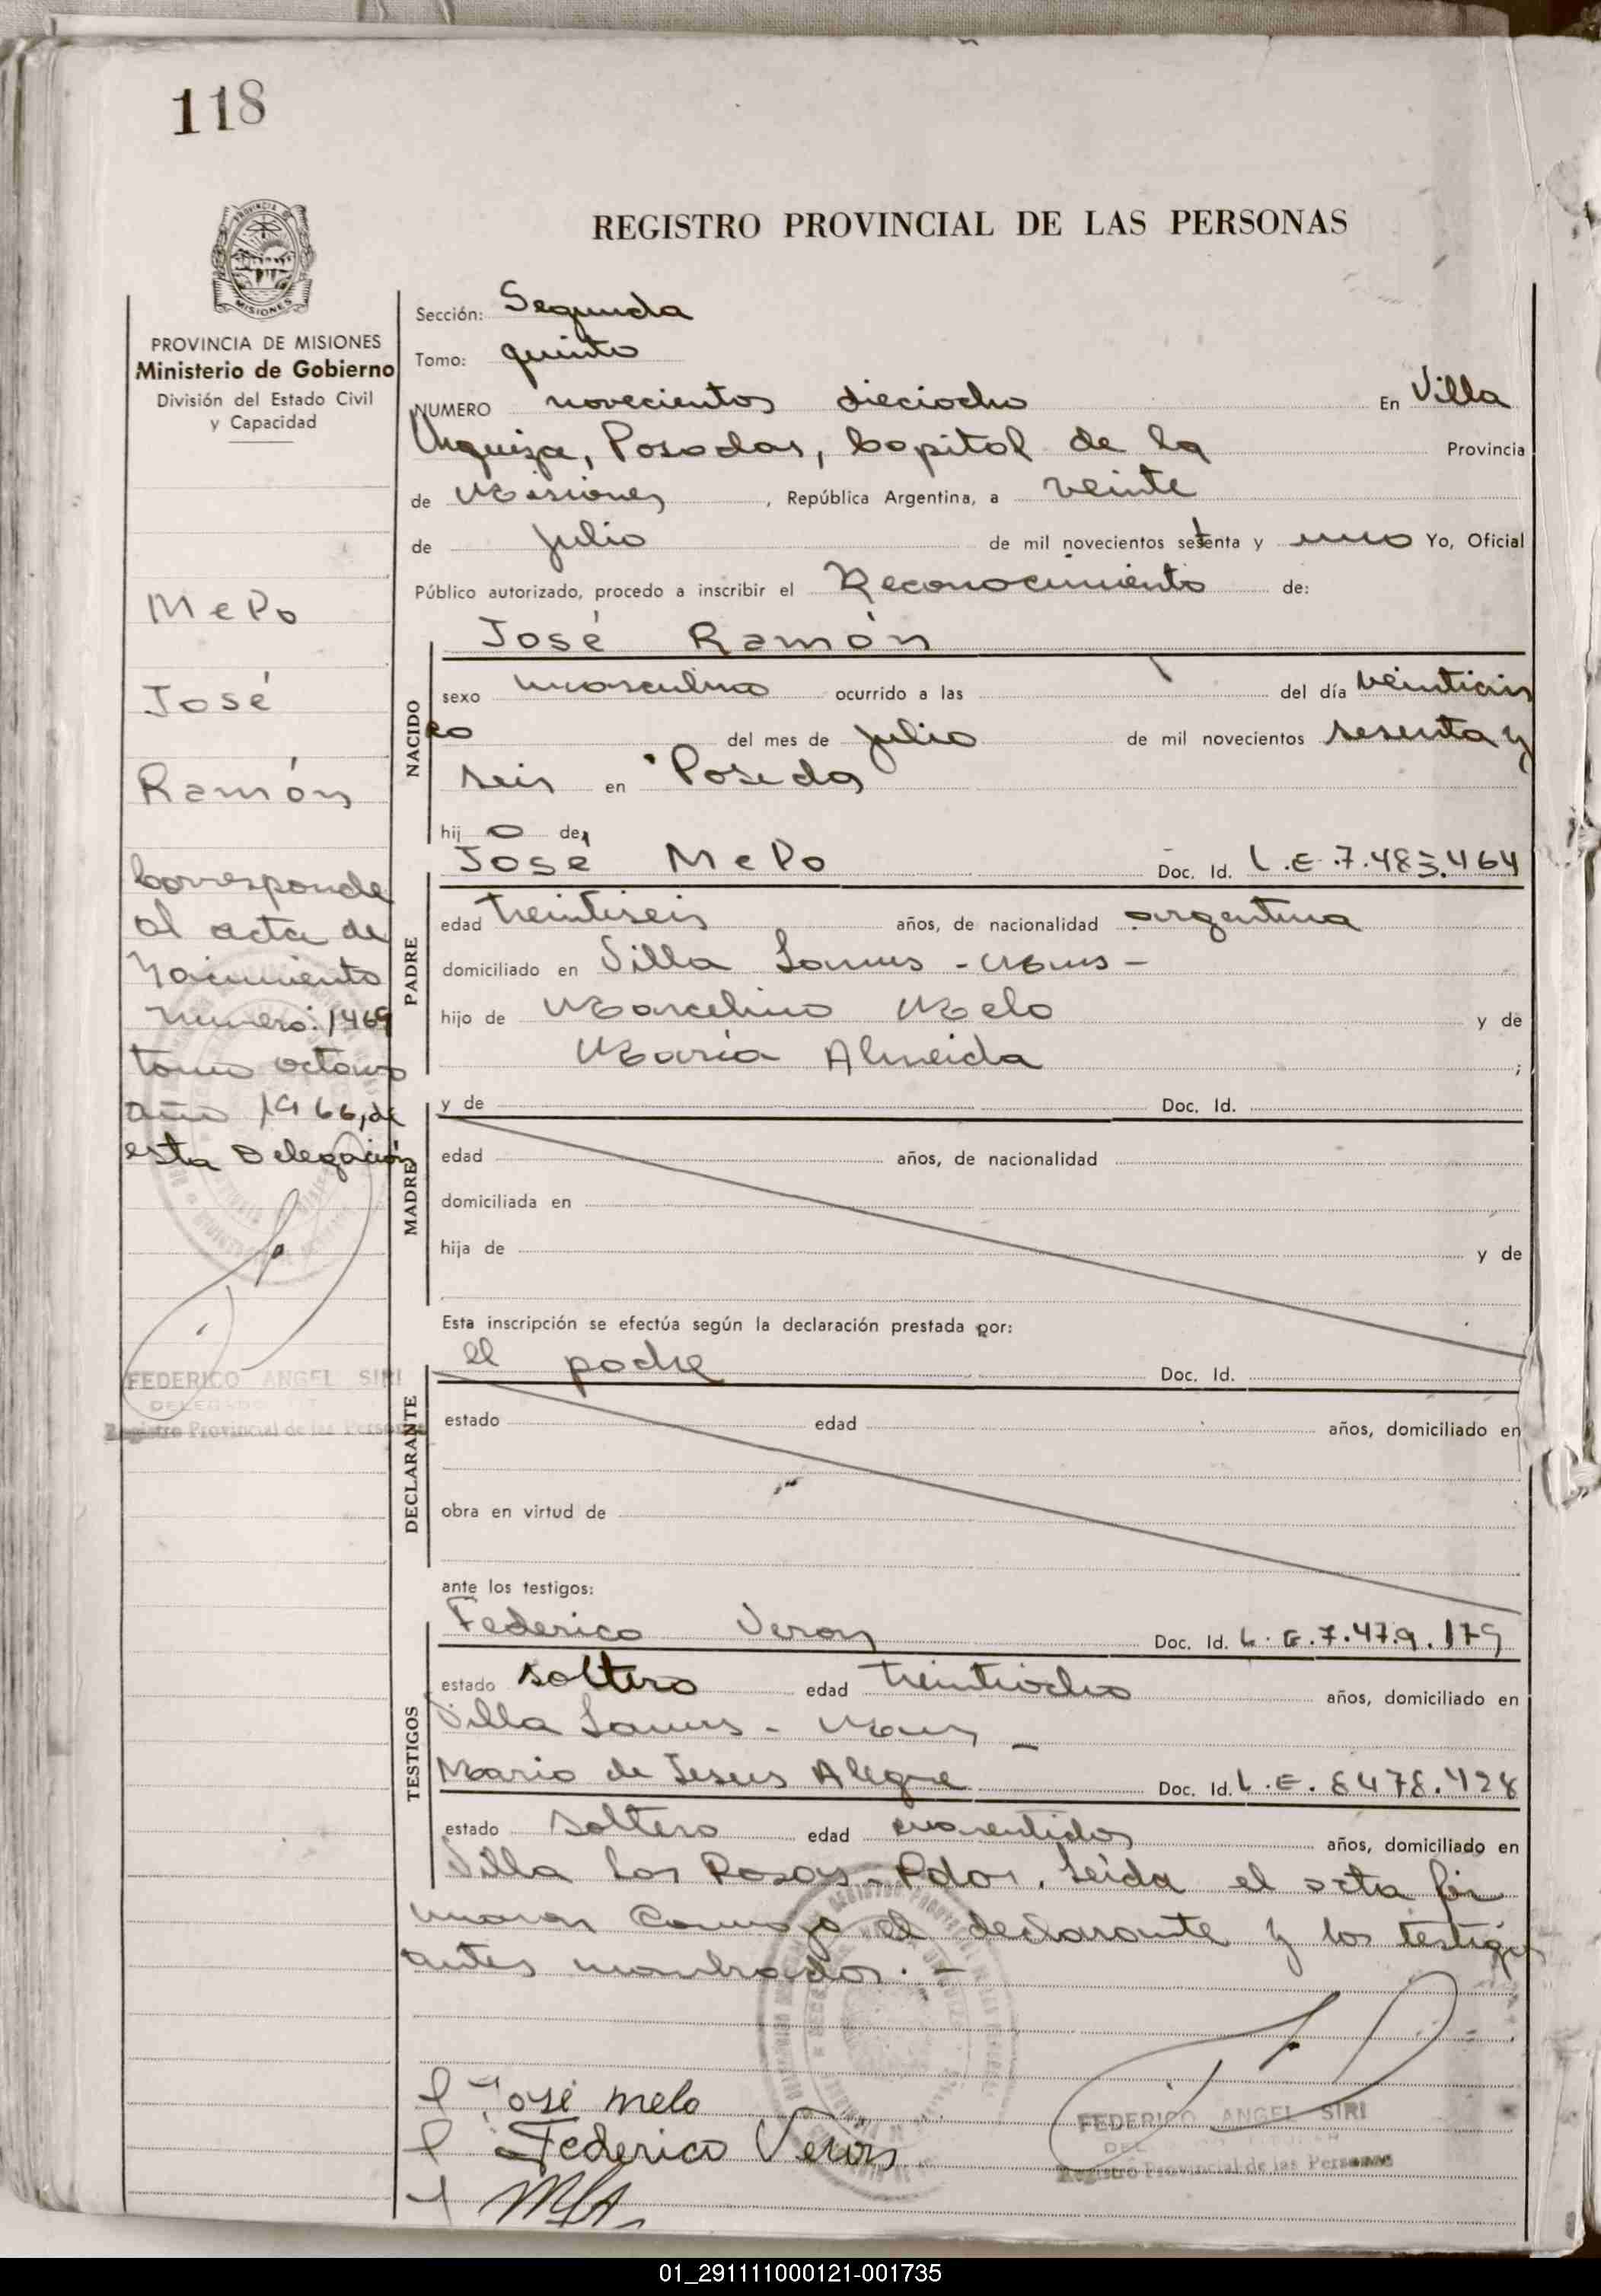 118
REGISTRO PROVINCIAL DE LAS PERSONAS
MISIONES
PROVINCIA DE MISIONES
Ministerio de Gobierno
División del Estado Civil
y Capacidad
Melo
José
Ramón
Corresponde
al acta de
Nacimiento
número: 1469
tomo octavo
año 1966, de
esta Delegación
FEDERICO ANGEL SIRI
DELEGADO
Registro Provincial de las Personas
Sección: Segunda
Tomo: quinto
NUMERO novecientos dieciocho En Villa
Urquiza, Posadas, Capital de la Provincia
de Misiones, República Argentina, a veinte
de julio de mil novecientos setenta y uno Yo, Oficial
Público autorizado, procedo a inscribir el Reconocimiento de:
José Ramón
NACIDO
sexo masculino ocurrido a las del día veinticin
co del mes de julio de mil novecientos sesenta y
seis en Posadas
hij o de,
PADRE
José Melo Doc. Id. L.E.7.483.464
edad treintiseis años, de nacionalidad argentina
domiciliado en Villa Lanus - Mnes -
hijo de Marcelino Melo y de
María Almeida ;
MADRE
y de Doc. Id.
edad años, de nacionalidad
domiciliada en
hija de y de
Esta inscripción se efectúa según la declaración prestada por:
DECLARANTE
el padre Doc. Id.
estado edad años, domiciliado en
obra en virtud de
ante los testigos:
TESTIGOS
Federico Veron Doc. Id. L.E.7.479.179
estado soltero edad treintiocho años, domiciliado en
Villa Lanus - Mnes -
Mario de Jesus Alegre Doc. Id. L.E. 8478.428
estado soltero edad cuarentidos años, domiciliado en
Villa Las Rosas - Pdas. Leida el acta fir
maron conmigo el declarante y los testigos
antes nombrados. -
José melo
Federico Veron
FEDERICO ANGEL SIRI
Registro Provincial de las Personas
01_291111000121-001735